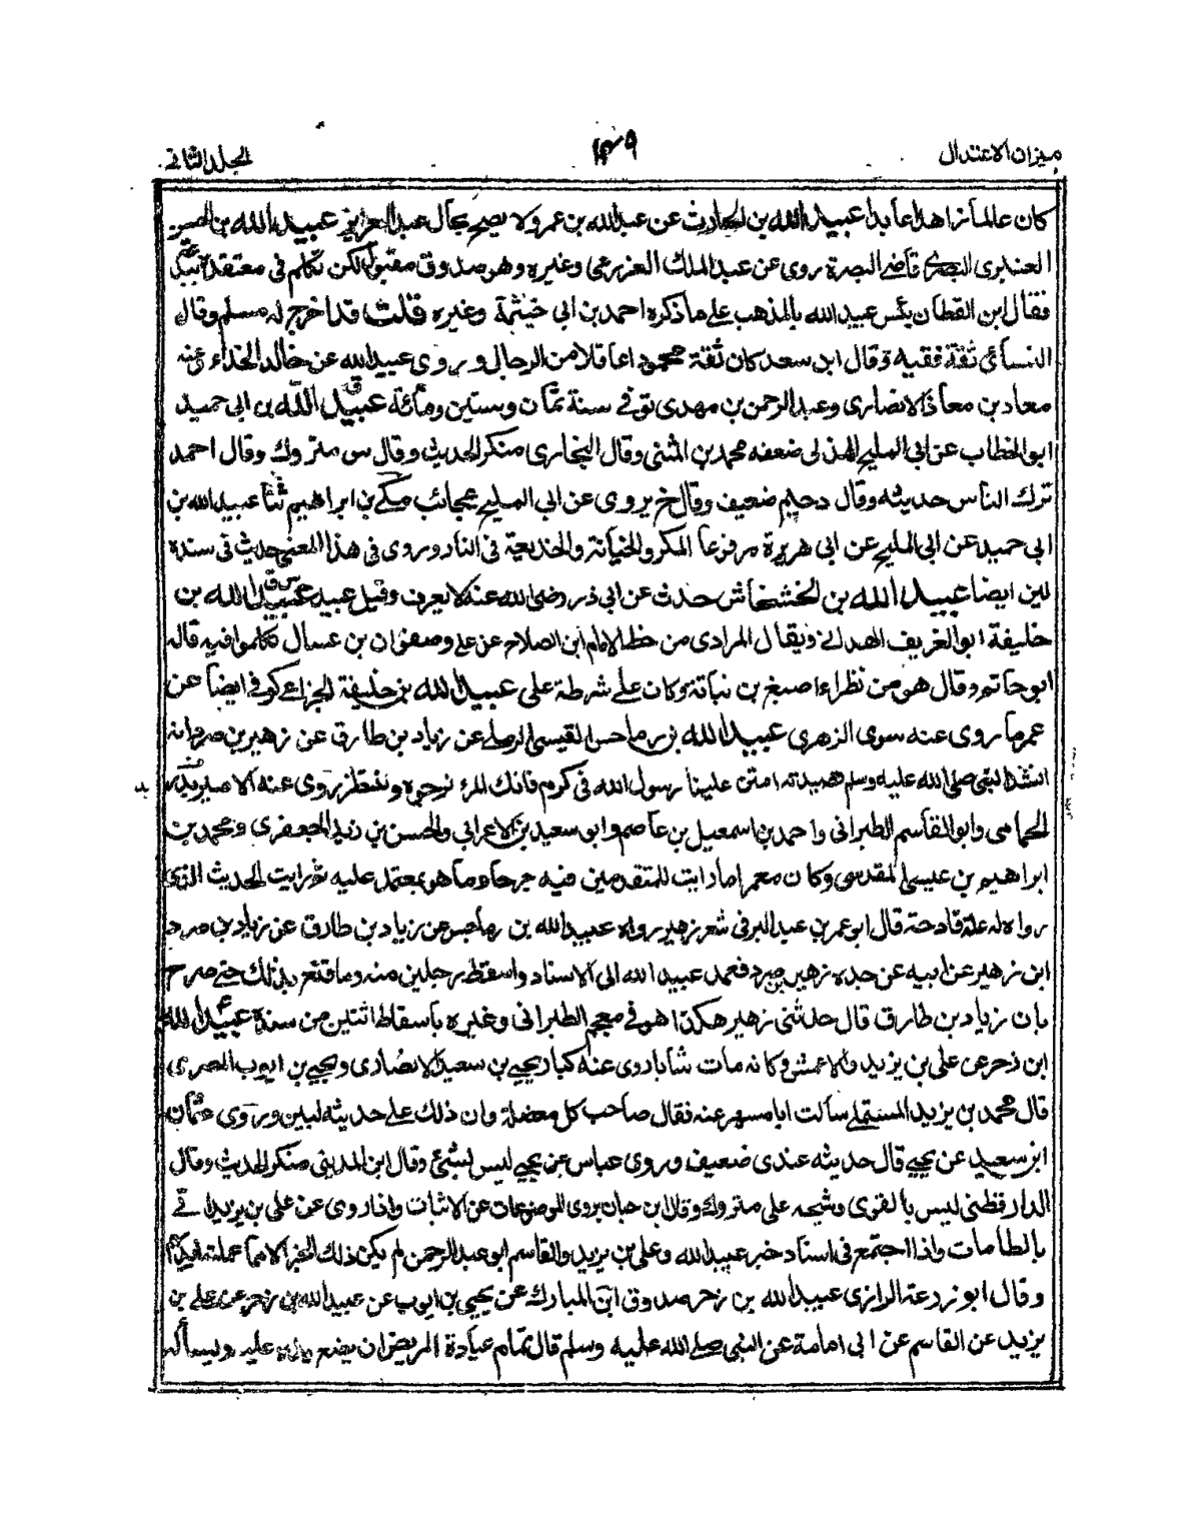 ميزان الاعتدال
١٤٩
الجلد الثاني
كان عالما زاهدا عابدا عبيد الله بن الحارث عن عبد الله بن عمر ولا يصح قال عبد العزيز عبيد الله بن الحسن
العنبرى البصرى قاضى البصرة روى عن عبد الملك العزرمى وغيره وهو صدوق مقبول لكن تكلم فى معتقده ببدعة
فقال ابن القطان يكس عبيد الله بالمذهب على ما ذكره احمد بن ابى خيثمة وغيره قلت قد اخرج له مسلم وقال
النسائى ثقة فقيه وقال ابن سعد كان ثقة محمودا عاقلا من الرجال وروى عبيد الله عن خالد الحذاء وعنه
معاذ بن معاذ الانصارى وعبد الرحمن بن مهدى توفى سنة ثمان وستين ومائة عبيد الله بن ابى حميد
ابو الخطاب عن ابى المليح الهذلى ضعفه محمد بن المثنى وقال البخارى منكر الحديث وقال س متروك وقال احمد
ترك الناس حديثه وقال دحيم ضعيف وقال خ يروى عن ابى المليح عجائب مكى بن ابراهيم ثنا عبيد الله بن
ابى حميد عن ابى المليح عن ابى هريرة مرفوعا المكر والخيانة والخديعة فى النار وروى فى هذا المعنى حديث فى سنده
لين ايضا عبيد الله بن الخشخاش حدث عن ابى ذر رضى الله عنه لا يعرف وقيل عبيد عبيد الله بن
خليفة ابو الغريف الهمدانى ويقال المرادى من خط الامام ابن الصلاح عن على وصفوان بن عسال تكلموا فيه قاله
ابو حاتم وقال هو من نظراء اصبغ بن نباتة وكان على شرطة على عبيد الله بن خليفة الخزاعى كوفى ايضا عن
عمر ما روى عنه سوى الزهرى عبيد الله بن رماحس القيسى الرملى عن زياد بن طارق عن زهير بن صرد انه
انشد النبى صلى الله عليه وسلم قصيدته امنن علينا رسول الله فى كرم فانك المرء نرجوه وننتظر روى عنه الامير بدر
الحمامى وابو القاسم الطبرانى واحمد بن اسمعيل بن عاصم وابو سعيد بن الاعرابى والحسن بن زيد الجعفرى ومحمد بن
ابراهيم بن عيسى المقدسى وكان معمرا ما رايت للمتقدمين فيه جرحا وما هو بمعتمد عليه ثم رايت الحديث الذى
رواه له علة قادحة قال ابو عمر بن عبد البر فى شعر زهير رواه عبيد الله بن رماحس عن زياد بن طارق عن زياد بن صرد
ابن زهير عن ابيه عن جده زهير بن صرد فعمد عبيد الله الى الاسناد واسقط رجلين منه وما قنع بذلك حتى صرح
بان زياد بن طارق قال حدثنى زهير هكذا هو فى معجم الطبرانى وغيره باسقاط اثنين من سنده عبيد الله
ابن زحر عن على بن يزيد والاعمش وكانه مات شابا روى عنه كبار يحيى بن سعيد الانصارى ويحيى بن ايوب المصرى
قال محمد بن يزيد المستملى سالت ابا مسهر عنه فقال صاحب كل معضلة وان ذلك على حديثه لبين وروى عثمان
ابن سعيد عن يحيى قال حديثه عندى ضعيف وروى عباس عن يحيى ليس بشئ وقال ابن المدينى منكر الحديث وقال
الدارقطنى ليس بالقوى وشيخه على متروك وقال ابن حبان يروى الموضوعات عن الاثبات واذا روى عن على بن يزيد اتى
بالطامات واذا اجتمع فى اسناد خبر عبيد الله وعلى بن يزيد والقاسم ابو عبد الرحمن لم يكن ذلك الخبر الا مما عملته ايديهم
وقال ابو زرعة الرازى عبيد الله بن زحر صدوق ابن المبارك عن يحيى بن ايوب عن عبيد الله بن زحر عن على بن
يزيد عن القاسم عن ابى امامة عن النبى صلى الله عليه وسلم قال تمام عيادة المريض ان يضع يده عليه ويسأله